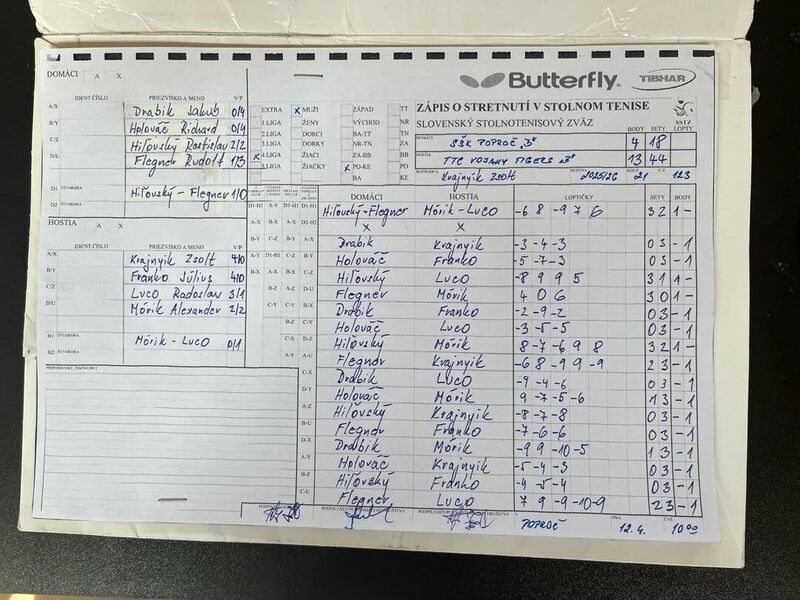 DOMÁCI A X
IDENT.ČÍSLO PRIEZVISKO A MENO V/P
A/X Drabik Jakub 0/4
B-Y Holováč Richard 0/4
C/Z Hiľovský Rastislav 2/2
D/U Flegner Rudolf 1/3
D1 ŠTVORHRA Hiľovský - Flegner 1/0
D2
HOSTIA A X
IDENT.ČÍSLO PRIEZVISKO A MENO V/P
A/X Krajnyik Zsolt 4/0
B-Y Franko Július 4/0
C/Z Luco Radoslav 3/1
D/U Mórik Alexander 2/2
H1 ŠTVORHRA Mórik - Luco 0/1
H2 ŠTVORHRA
PRIPOMIENKY, POZNÁMKY
EXTRA X MUŽI ZÁPAD TT
1.LIGA ŽENY VÝCHOD NR
2.LIGA DORCI BA-TT TN
3.LIGA DORKY NR-TN ZA
X 4.LIGA ŽIACI ZA-BB BB
5.LIGA ŽIAČKY X PO-KE PO
BA KE
Butterfly TIBHAR
ZÁPIS O STRETNUTÍ V STOLNOM TENISE
SLOVENSKÝ STOLNOTENISOVÝ ZVÄZ
SSTZ
BODY SETY LOPTY
DOMÁCI ŠŠK POPROČ "B" 4 18
HOSTIA TTC VOJANY TIGERS "B" 13 44
ROZHODCA Krajnyik Zsolt SEZÓNA 2025/26 KOLO 21 Č. 123
DOMÁCI HOSTIA LOPTIČKY SETY BODY
Hiľovský-Flegner Mórik - Luco -6 8 -9 7 6 3 2 1 -
X X
Drabik Krajnyik -3 -4 -3 0 3 - 1
Holováč Franko -5 -7 -3 0 3 - 1
Hiľovský Luco -8 9 9 5 3 1 1 -
Flegner Mórik 4 0 6 3 0 1 -
Drabik Franko -2 -9 -2 0 3 - 1
Holováč Luco -3 -5 -5 0 3 - 1
Hiľovský Mórik 8 -7 -6 9 8 3 2 1 -
Flegner Krajnyik -6 8 -9 9 -9 2 3 - 1
Drabik Luco -9 -4 -6 0 3 - 1
Holováč Mórik 9 -7 -5 -6 1 3 - 1
Hiľovský Krajnyik -8 -7 -8 0 3 - 1
Flegner Franko -7 -6 -6 0 3 - 1
Drabik Mórik -9 9 -10 -5 1 3 - 1
Holováč Krajnyik -5 -4 -3 0 3 - 1
Hiľovský Franko -4 -5 -4 0 3 - 1
Flegner Luco 7 9 -9 -10 -9 2 3 - 1
POPROČ DŇA 12.4. ČAS 10 00